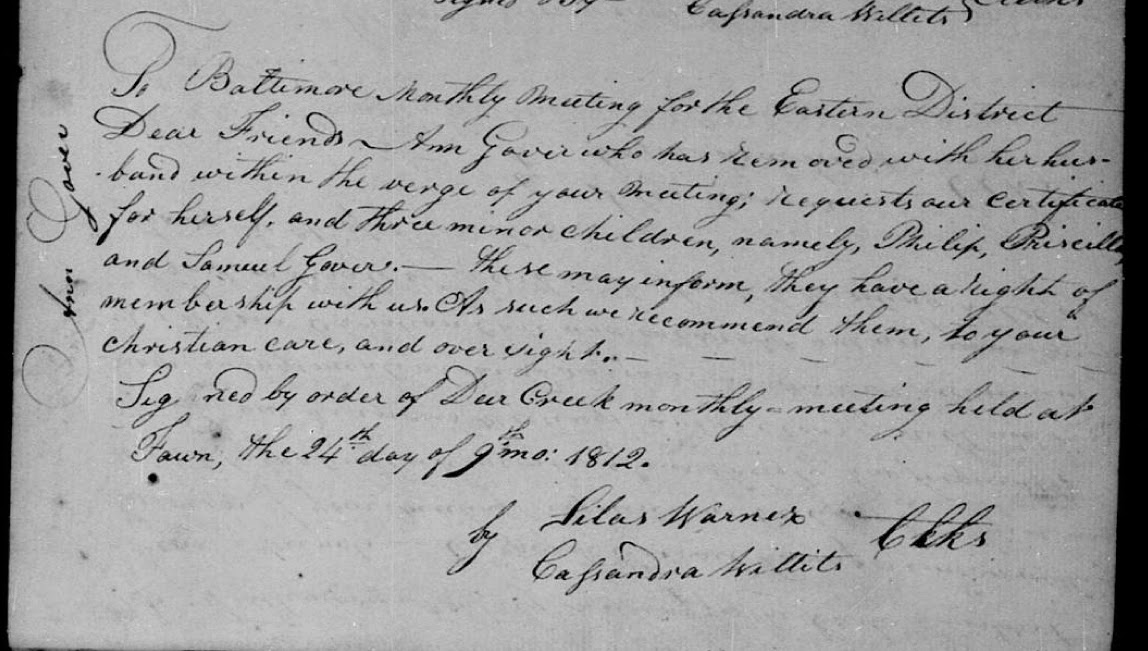 Cassandra Willits
Ann Gover
To Baltimore Monthly Meeting for the Eastern District
Dear Friends Ann Gover who has removed with her hus-
-band within the verge of your Meeting; requests our certificate
for herself, and three minor children, namely, Philip, Priscilla,
and Samuel Gover. — these may inform, they have a right of
membership with us. As such we recommend them, to your
christian care, and over sight. — — — — —
Sig ned by order of Deer Creek monthly-meeting held at
Fawn, the 24th day of 9th mo: 1812.
by Silas Warner Clks
Cassandra Willits